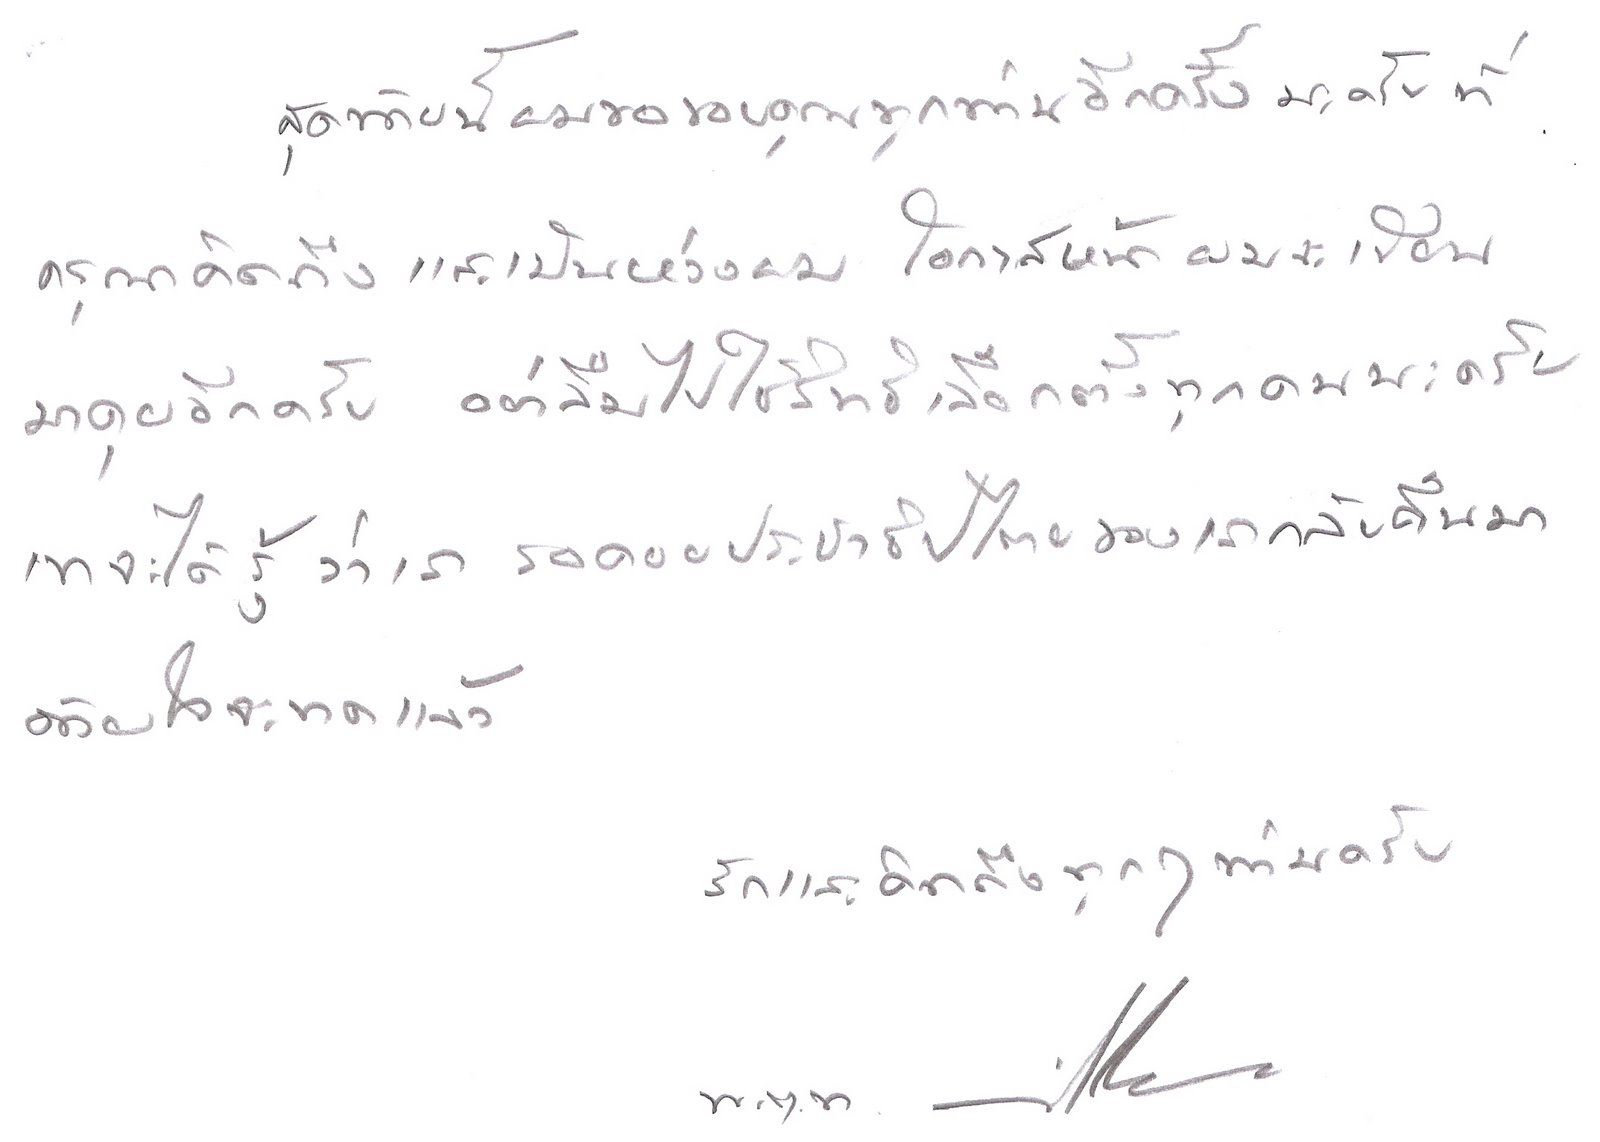 สุดท้ายนี้ ผมขอขอบคุณทุกท่านอีกครั้ง นะครับ ที่
กรุณาคิดถึง และเป็นห่วงผม โอกาสหน้า ผมจะเขียน
มาคุยอีกครับ อย่าลืมไปใช้สิทธิเลือกตั้งทุกคนนะครับ
เขาจะได้รู้ ว่าเรา รอคอยประชาธิปไตยของเรากลับคืนมา
ด้วยใจจะขาดแล้ว
รักและคิดถึงทุกๆท่านครับ
พ.ต.ท.